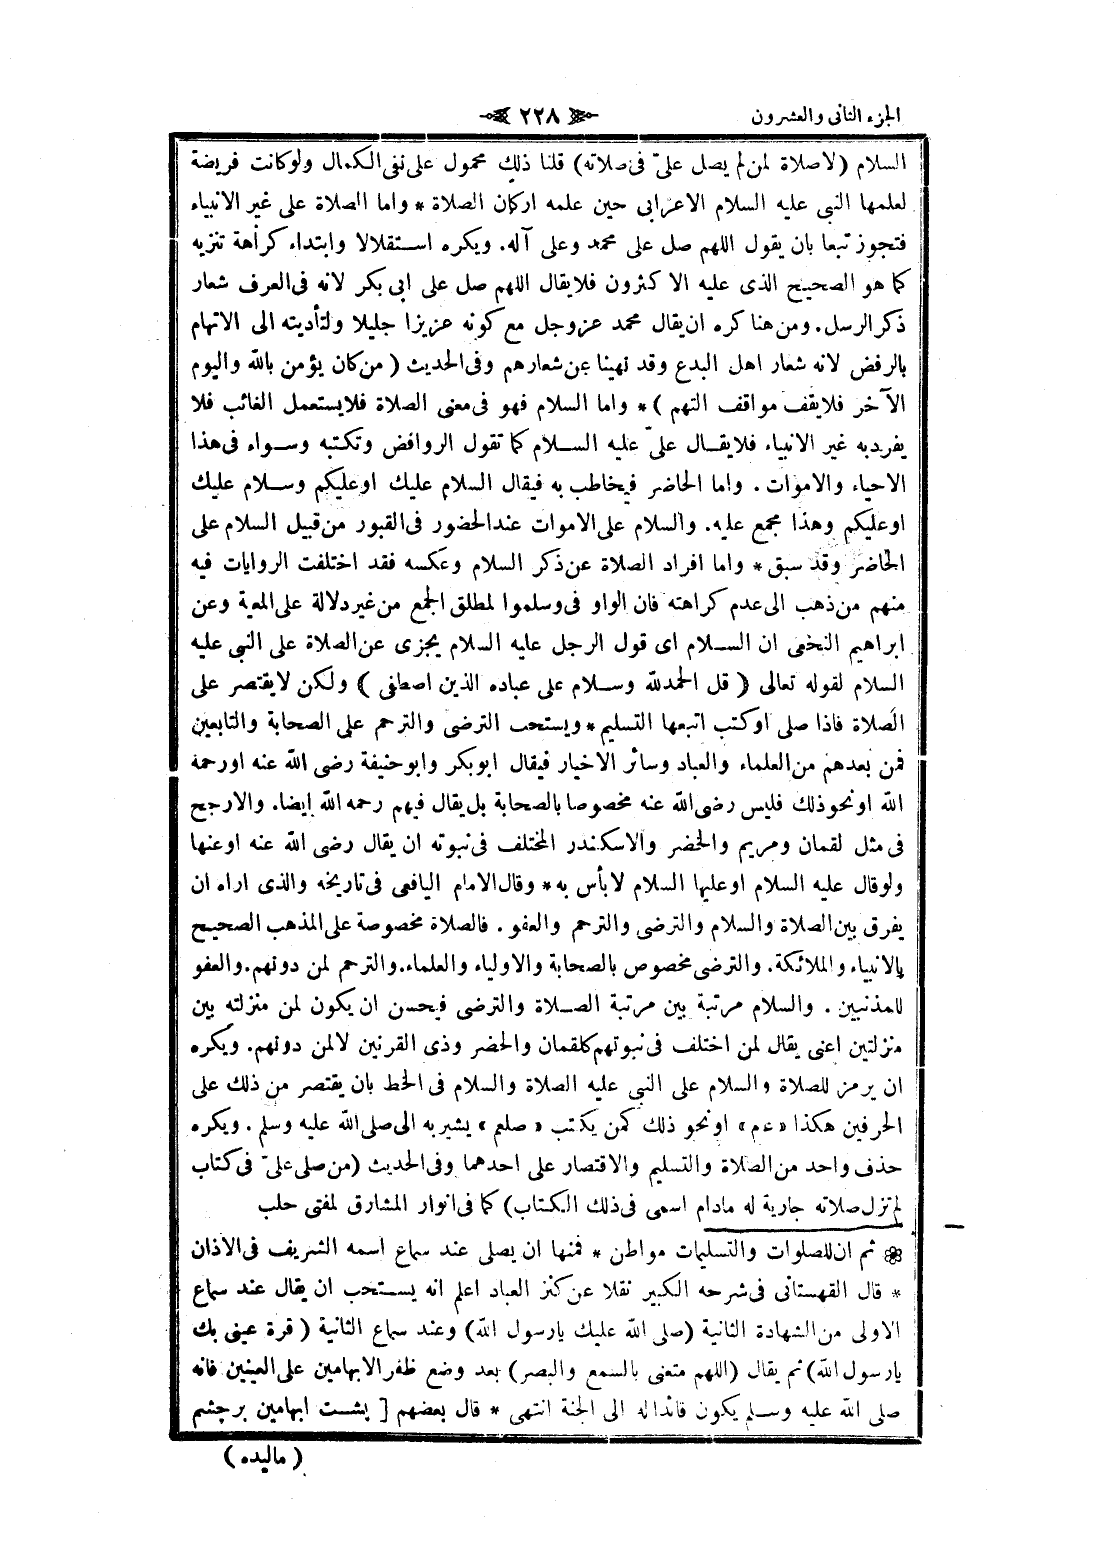 الجزء الثانى والعشرون ٢٢٨
السلام (لا صلاة لمن لم يصل علىّ فى صلاته) قلنا ذلك محمول على نفى الكمال ولو كانت فريضة
لعلمها النبي عليه السلام الاعرابى حين علمه اركان الصلاة * واما الصلاة على غير الانبياء
فتجوز تبعا بان يقول اللهم صل على محمد وعلى آله. ويكره استقلالا وابتداء كراهة تنزيه
كما هو الصحيح الذى عليه الاكثرون فلا يقال اللهم صل على ابى بكر لانه فى العرف شعار
ذكر الرسل. ومن هنا كره ان يقال محمد عز وجل مع كونه عزيزا جليلا ولتأديته الى الاتهام
بالرفض لانه شعار اهل البدع وقد نهينا عن شعارهم وفى الحديث ( من كان يؤمن بالله واليوم
الآخر فلا يقف مواقف التهم )* واما السلام فهو فى معنى الصلاة فلا يستعمل الغائب فلا
يفرد به غير الانبياء فلا يقال علىّ عليه السلام كما تقول الروافض وتكتبه وسواء فى هذا
الاحياء والاموات . واما الحاضر فيخاطب به فيقال السلام عليك او عليكم وسلام عليك
او عليكم وهذا مجمع عليه. والسلام على الاموات عند الحضور فى القبور من قبيل السلام على
الحاضر وقد سبق * واما افراد الصلاة عن ذكر السلام وعكسه فقد اختلفت الروايات فيه
منهم من ذهب الى عدم كراهته فان الواو فى وسلموا لمطلق الجمع من غير دلالة على المعية وعن
ابراهيم النخعى ان السلام اى قول الرجل عليه السلام يجزى عن الصلاة على النبى عليه
السلام لقوله تعالى ( قل الحمد لله وسلام على عباده الذين اصطفى ) ولكن لا يقتصر على
الصلاة فاذا صلى او كتب اتبعها التسليم * ويستحب الترضى والترحم على الصحابة والتابعين
فمن بعدهم من العلماء والعباد وسائر الاخيار فيقال ابو بكر وابو حنيفة رضى الله عنه او رحمه
الله او نحو ذلك فليس رضى الله عنه مخصوصا بالصحابة بل يقال فيهم رحمه الله ايضا. والارجح
فى مثل لقمان ومريم والخضر والاسكندر المختلف فى نبوته ان يقال رضى الله عنه او عنها
ولو قال عليه السلام او عليها السلام لا بأس به * وقال الامام اليافعى فى تاريخه والذى اراه ان
يفرق بين الصلاة والسلام والترضى والترحم والعفو . فالصلاة مخصوصة على المذهب الصحيح
بالانبياء والملائكة. والترضى مخصوص بالصحابة والاولياء والعلماء. والترحم لمن دونهم. والعفو
للمذنبين . والسلام مرتبة بين مرتبة الصلاة والترضى فيحسن ان يكون لمن منزلته بين
منزلتين اعنى يقال لمن اختلف فى نبوتهم كلقمان والخضر وذى القرنين لا لمن دونهم. ويكره
ان يرمز للصلاة والسلام على النبى عليه الصلاة والسلام فى الخط بان يقتصر من ذلك على
الحرفين هكذا « عم » او نحو ذلك كمن يكتب « صلعم » يشير به الى صلى الله عليه وسلم . ويكره
حذف واحد من الصلاة والتسليم والاقتصار على احدهما وفى الحديث (من صلى علىّ فى كتاب
لم تزل صلاته جارية له مادام اسمى فى ذلك الكتاب) كما فى انوار المشارق لمفتى حلب
ثم ان للصلوات والتسليمات مواطن * فمنها ان يصلى عند سماع اسمه الشريف فى الاذان
* قال القهستانى فى شرحه الكبير نقلا عن كنز العباد اعلم انه يستحب ان يقال عند سماع
الاولى من الشهادة الثانية (صلى الله عليك يا رسول الله) وعند سماع الثانية ( قرة عينى بك
يا رسول الله) ثم يقال (اللهم متعنى بالسمع والبصر) بعد وضع ظفر الابهامين على العينين فانه
صلى الله عليه وسلم يكون قائدا له الى الجنة انتهى * قال بعضهم [ پشت ابهامين بر چشم
( ماليده )